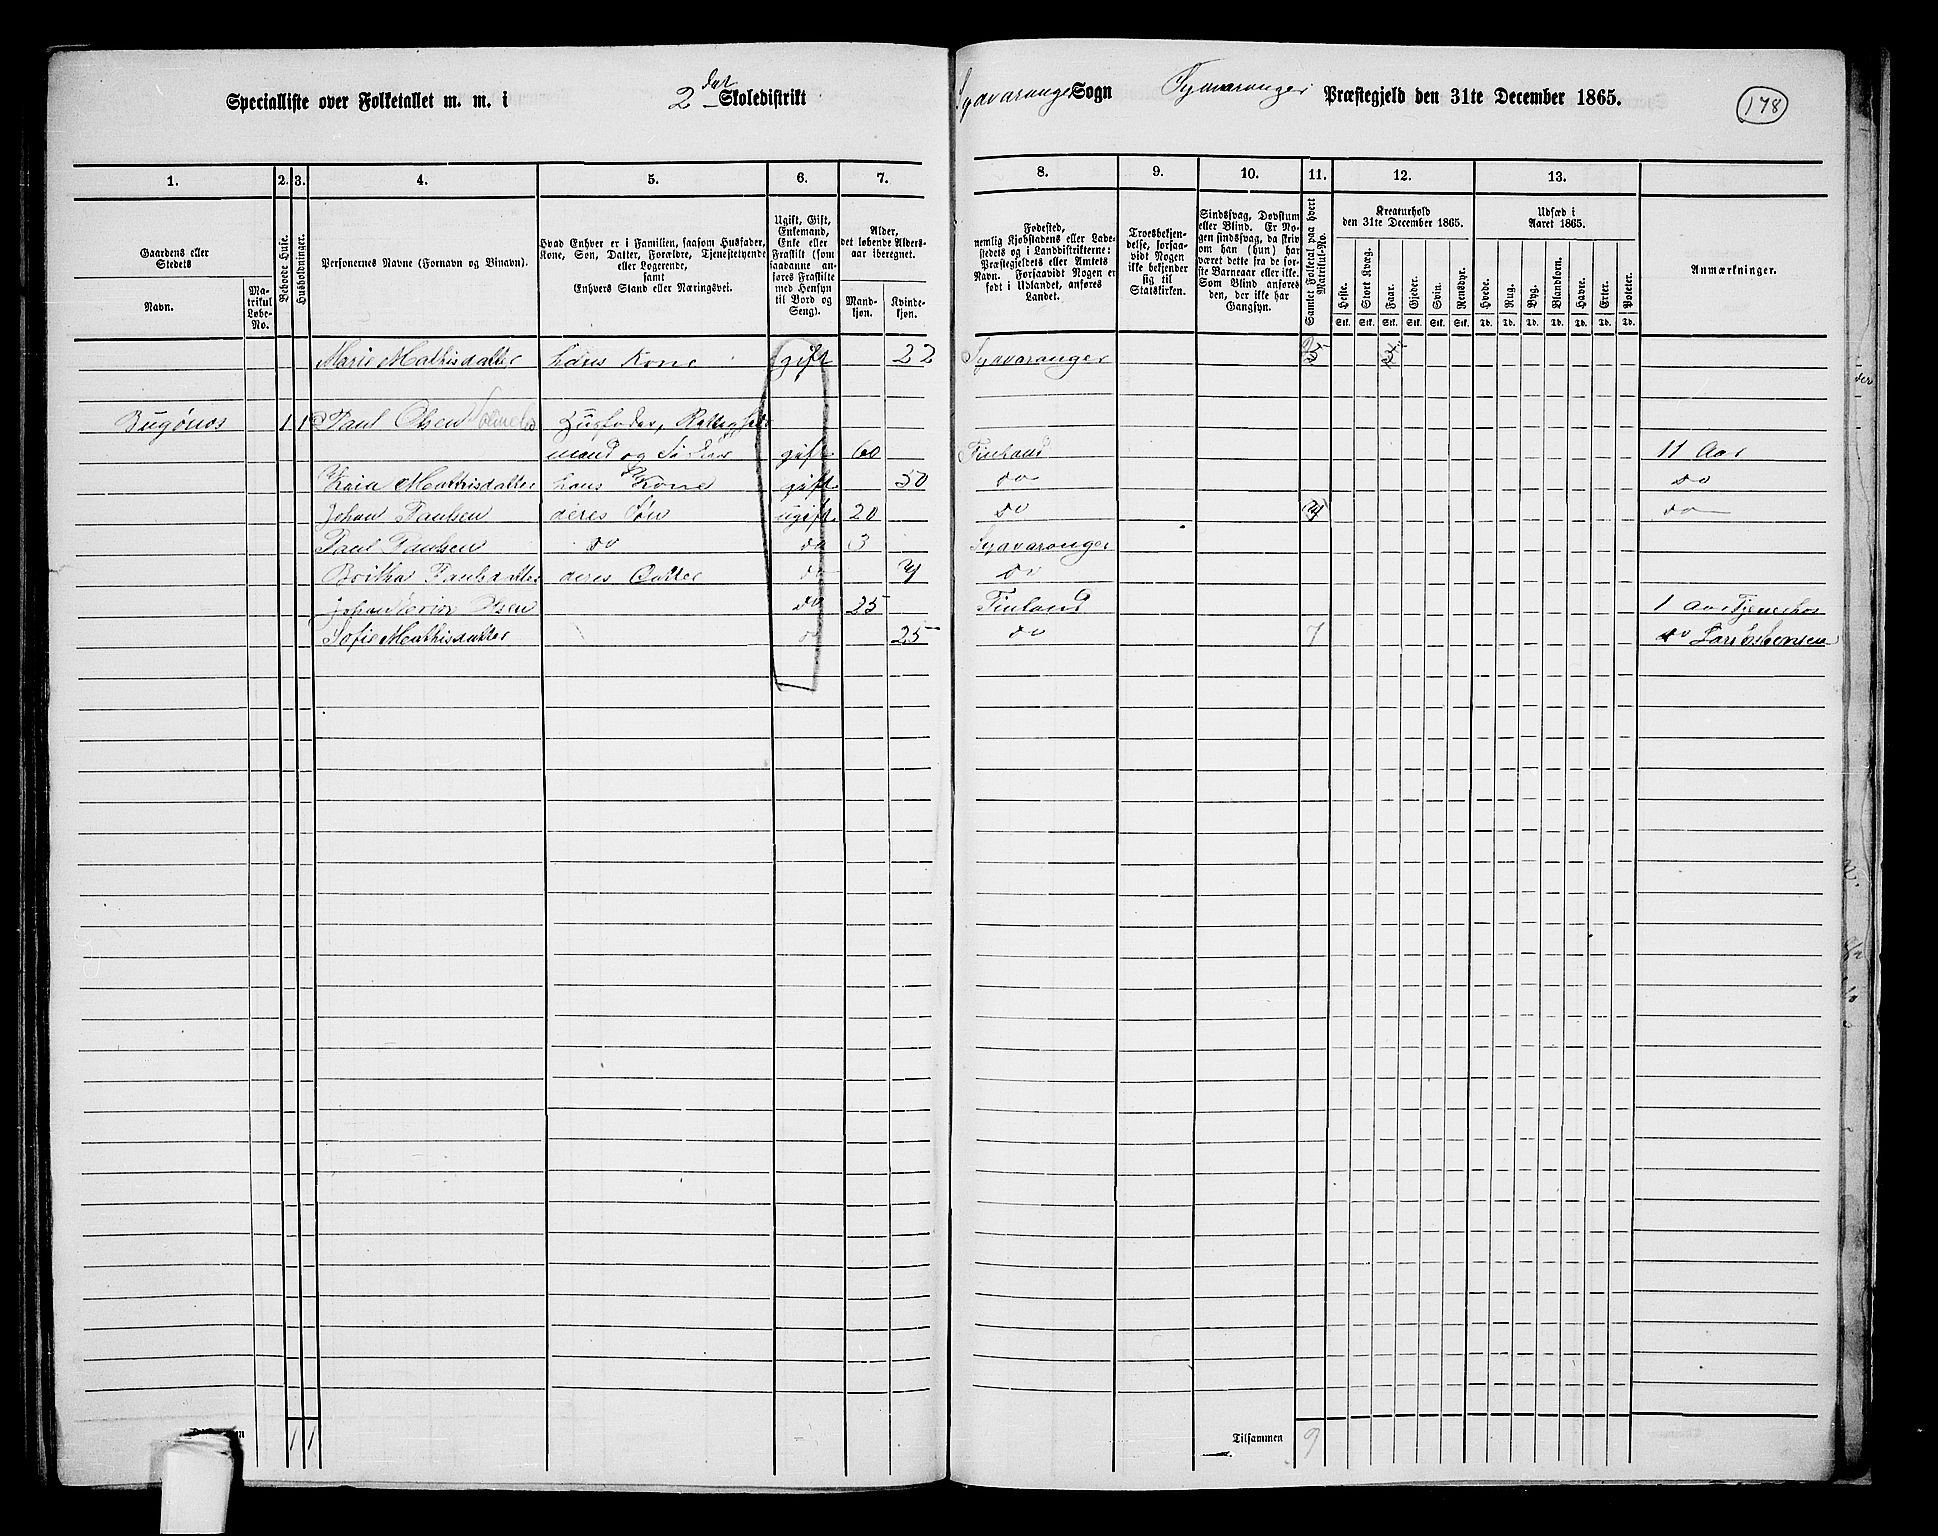 Specialliste over Folketallet m. m. i 2det Skoledistrikt
Sydvaranger Sogn Sydvaranger Præstegjeld den 31te December 1865.
178
1. 2. 3. 4. 5. 6. 7.
8. 9. 10. 11. 12. 13.
Gaardens eller Stedets
Navn.
Matrikul Løbe-No.
Beboede Huse.
Husholdninger.
Personernes Navne (Fornavn og Binavn).
Hvad Enhver er i Familien, saasom Husfader,
Kone, Søn, Datter, Forældre, Tjenestetyende
eller Logerende,
samt
Enhvers Stand eller Næringsvei.
Ugift, Gift,
Enkemand,
Enke eller
Fraskilt (som
saadanne an-
føres Fraskilte
med Hensyn
til Bord og
Seng).
Alder,
det løbende Alders-
aar iberegnet.
Mand-
kjøn.
Kvinde-
kjøn.
Fødested,
nemlig Kjøbstadens eller Lade-
stedets og i Landdistrikterne:
Præstegjeldets eller Amtets
Navn. Forsaavidt Nogen er
født i Udlandet, anføres
Landet.
Troesbekjen-
delse, forsaa-
vidt Nogen
ikke bekjender
sig til
Statskirken.
Sindssvag, Døvstum
eller Blind. Er No-
gen sindssvag, da skriv
om han (hun) har
været dette fra de før-
ste Barneaar eller ikke.
Som Blind anføres
den, der ikke har
Gangsyn.
Samlet Folketal paa hvert Matrikul-No.
Kreaturhold
den 31te December 1865.
Heste. Stort Kvæg. Faar. Gjeder. Svin. Rensdyr.
Stk. Stk. Stk. Stk. Stk. Stk.
Udsæd i
Aaret 1865.
Hvede. Rug. Byg. Blandkorn. Havre. Erter. Poteter.
Td. Td. Td. Td. Td. Td. Td.
Anmærkninger.
Marie Mathisdatter hans Kone gift 22 Sydvaranger
Bugønes 1 1 Paul Olsen Husfader,
mand og gift 60 Finland 11 Aar
Kaia Mathisdatter hans Kone gift 50 do do
Johan Paulsen deres Søn ugift 20 do do
Paul Paulsen do do 3 Sydvaranger
Paulsdatter deres Datter do do
Johan Olsen do 25 Finland 1 Aar Tjener hos
Sofie Mathisdatter do 25 do 7 do
1 1
Tilsammen 9